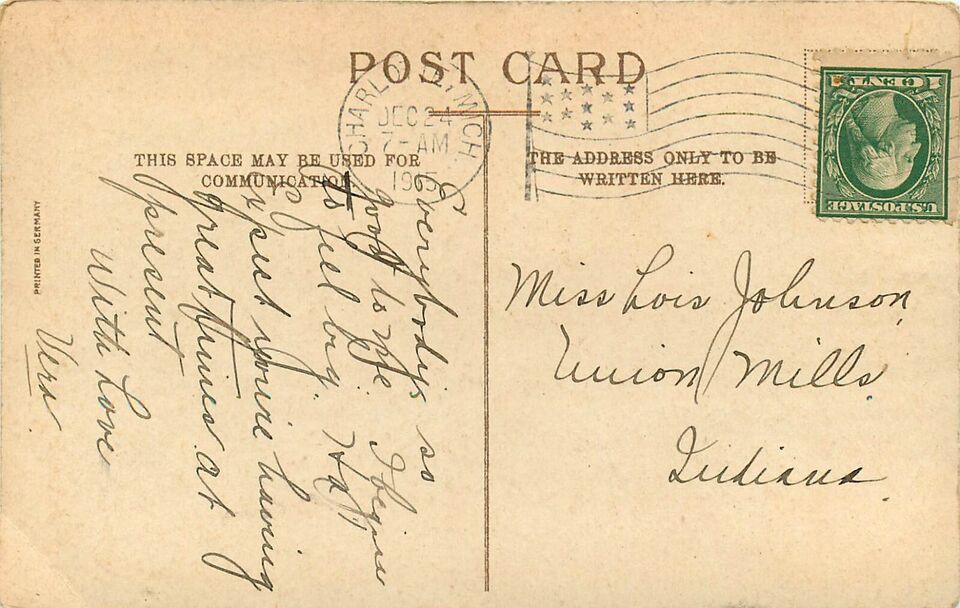 POST CARD
CHARLOTTE, MICH.
DEC 24
7-AM
THIS SPACE MAY BE USED FOR
COMMUNICATION
THE ADDRESS ONLY TO BE
WRITTEN HERE.
U.S. POSTAGE
1 CENT 1
PRINTED IN GERMANY
Everybody's so
good to me I begin
to feel big. Ha!
expect you're having
great times at
present
With Love
Vera
Miss Lois Johnson
Union Mills
Indiana